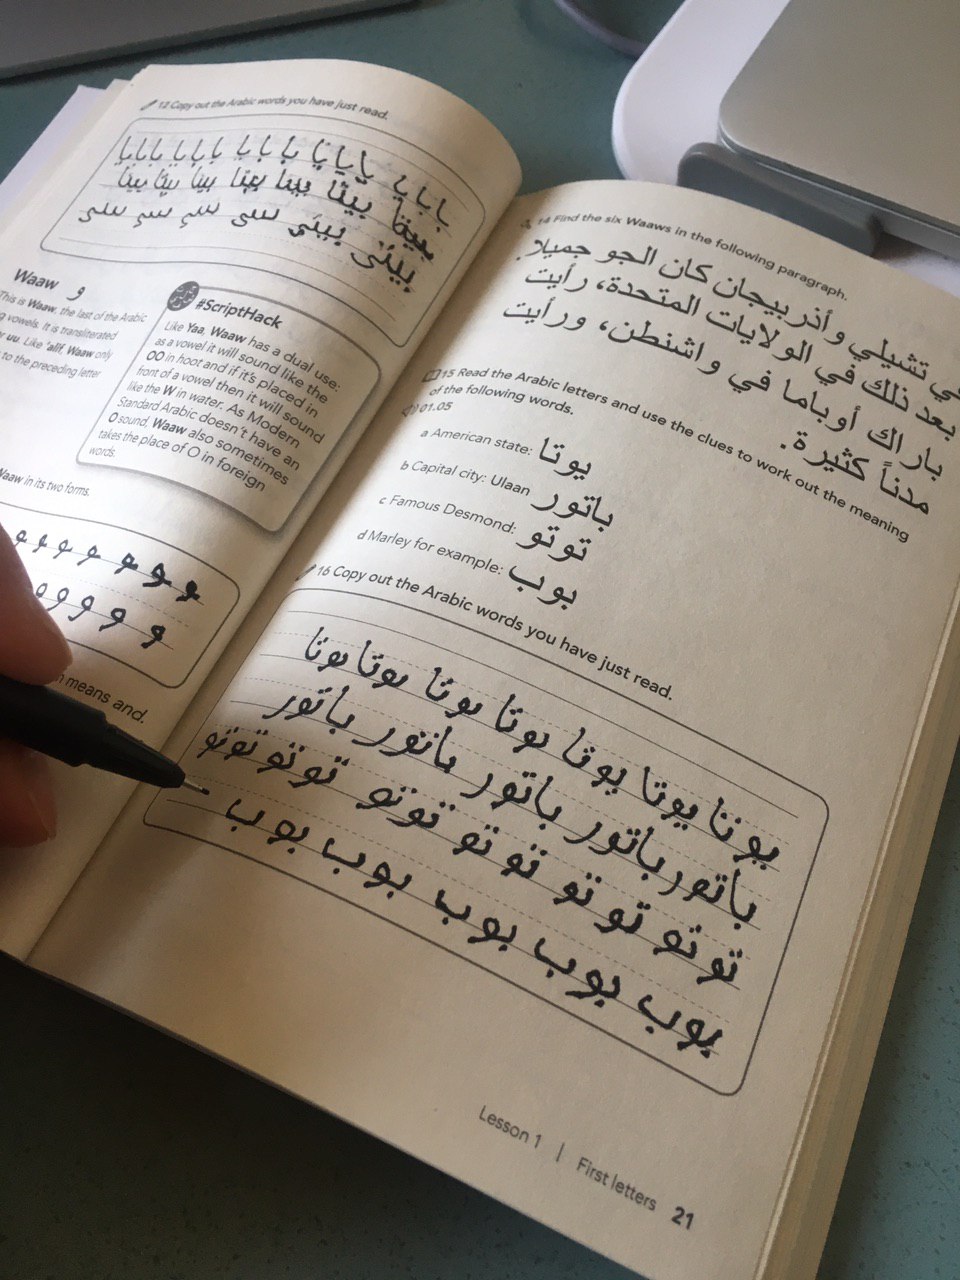 12 Copy out the Arabic words you have just read.
Waaw و
This is Waaw, the last of the Arabic
vowels. It is transliterated
uu. Like 'alif, Waaw only
to the preceding letter
#ScriptHack
Like Yaa, Waaw has a dual use:
as a vowel it will sound like the
OO in hoot and if it's placed in
front of a vowel then it will sound
like the W in water. As Modern
Standard Arabic doesn't have an
O sound, Waaw also sometimes
takes the place of O in foreign
words.
Waaw in its two forms.
و و و و و و و
و و و و و
means and.
14 Find the six Waaws in the following paragraph.
في تشيلي وأذربيجان كان الجو جميلا.
بعد ذلك في الولايات المتحدة، رأيت
باراك أوباما في واشنطن، ورأيت
مدناً كثيرة.
15 Read the Arabic letters and use the clues to work out the meaning
of the following words.
01.05
a American state: يوتا
b Capital city: Ulaan باتور
c Famous Desmond: توتو
d Marley for example: بوب
16 Copy out the Arabic words you have just read.
يوتا يوتا يوتا يوتا يوتا يوتا يوتا
باتور باتور باتور باتور باتور
توتو توتو توتو توتو توتو توتو
بوب بوب بوب بوب بوب
Lesson 1 | First letters 21